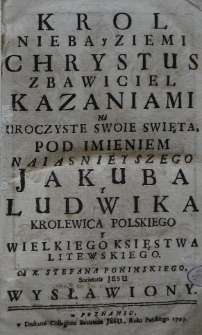 KROL
NIEBA y ZIEMI
CHRYSTUS
ZBAWICIEL
KAZANIAMI
NA
UROCZYSTE SWOIE SWIĘTA,
POD IMIENIEM
NAIASNIEYSZEGO
JAKUBA
Y
LUDWIKA
KROLEWICA POLSKIEGO
Y
WIELKIEGO KSIĘSTWA
LITEWSKIEGO.
Od X. STEFANA PONINSKIEGO,
Societatis JESU
WYSŁAWIONY.
w POZNANIU,
w Drukarni Collegium Societatis JESU, Roku Pańskiego